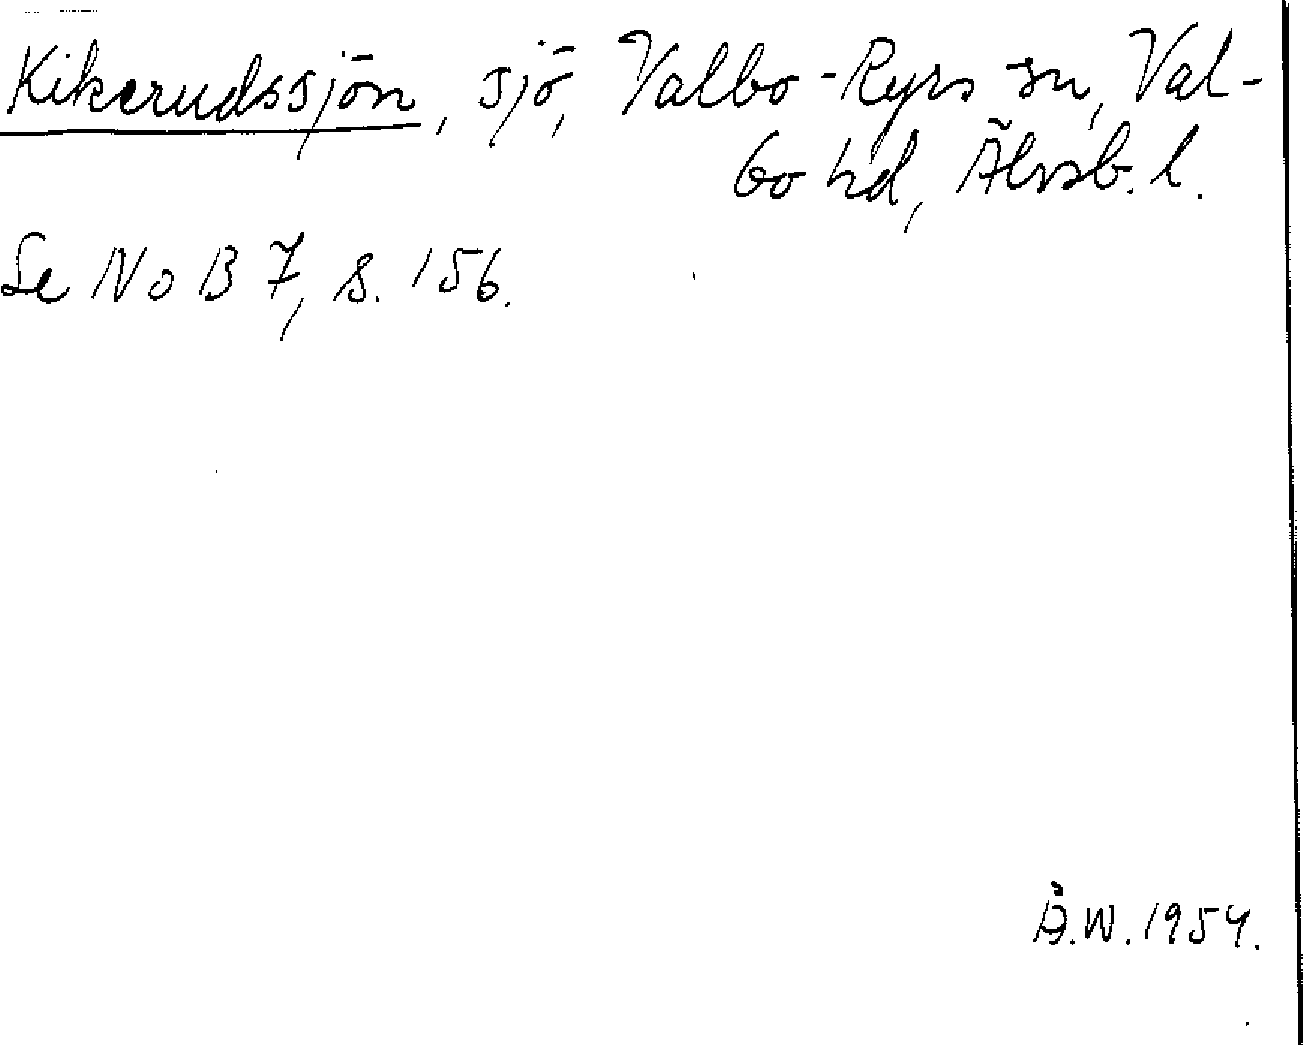 Kikerudssjön, sjö, Valbo-Ryrs sn, Val-
bo hd, Älvsb. l.
Se NoB 7, s. 156.
Å.W. 1954.